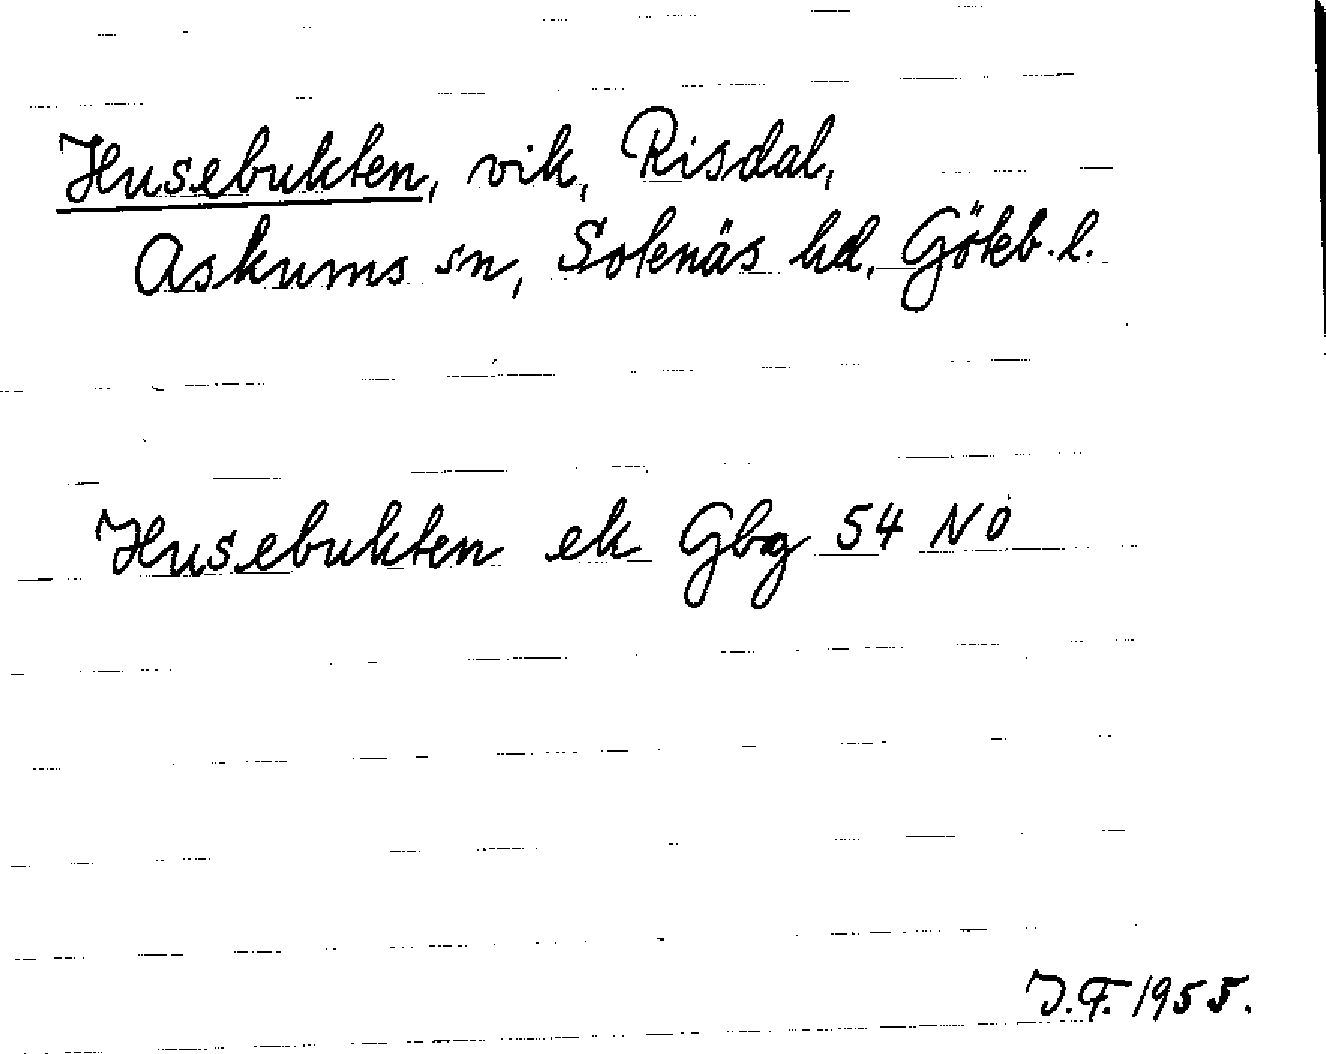 Husebukten, vik, Risdal,
Askums sn, Sotenäs hd, Göteb. l.
Husebukten ek Gbg 54 NO
J.F. 1955.